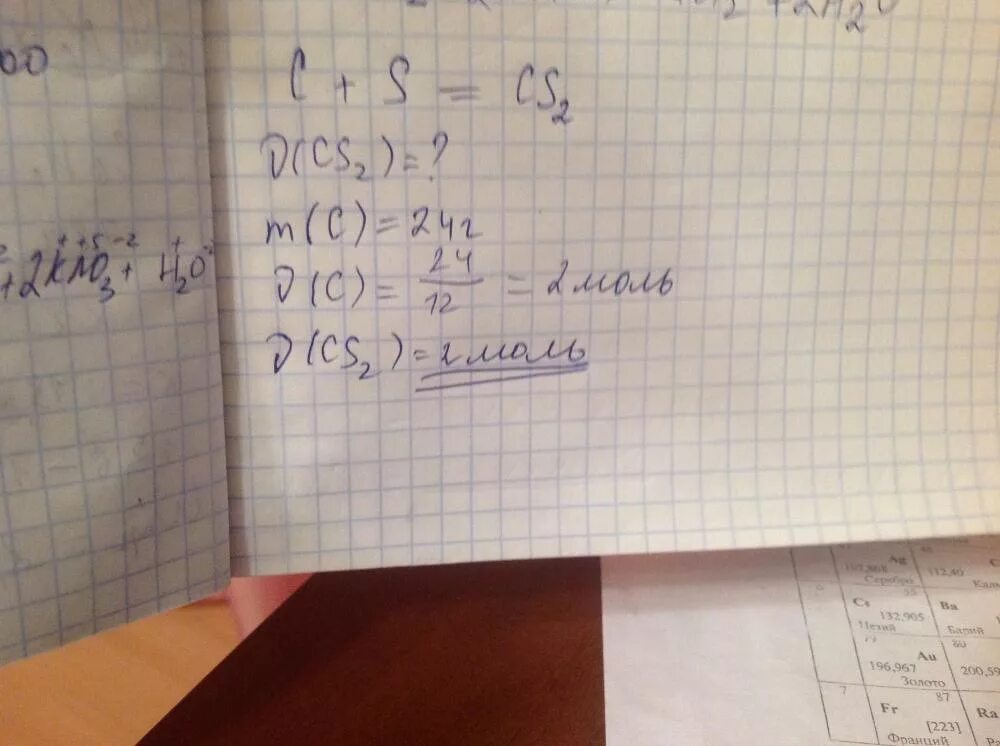 +2H₂O
00
C + S = CS₂
υ(CS₂) = ?
m(C) = 24г
υ(C) = 24/12 = 2 моль
υ(CS₂) = 2 моль
+2KNO₃ + H₂O
Ag
107,868
Серебро
112,40
55
Cs
132,905
Цезий
Ba
Барий
79
Au
196,967
Золото
80
200,59
7
87
Fr
[223]
Франций
Ra